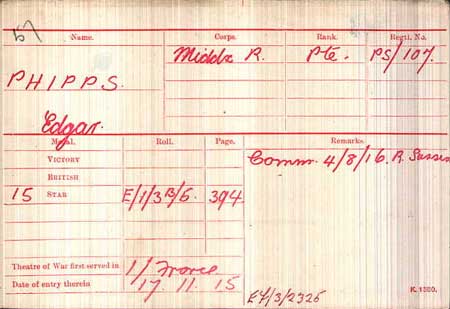 57
Name. Corps. Rank. Regtl. No.
PHIPPS. Middx R. Pte. PS/107.
Edgar.
Medal. Roll. Page. Remarks.
VICTORY Comm. 4/8/16. R. Sussex
BRITISH
15 STAR E/1/3B/6. 394.
Theatre of War first served in 1/ France
Date of entry therein 17. 11. 15
E4/3/2325
K. 1380.